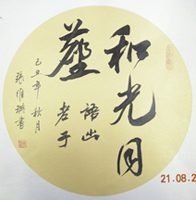 和光同
塵
語出
老子
己丑年秋月
張維
書
21.08.2